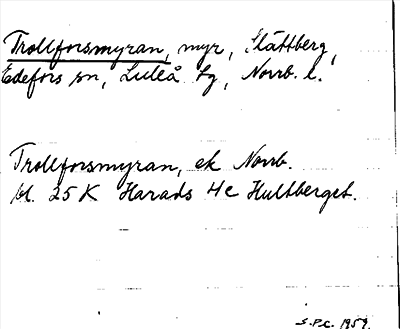 Trollforsmyran, myr, Slättberg,
Edefors sn, Luleå lg, Norrb. l.
Trollforsmyran, ek Norrb.
bl. 25 K Harads 4c Hultberget.
S.P.C. 1959.